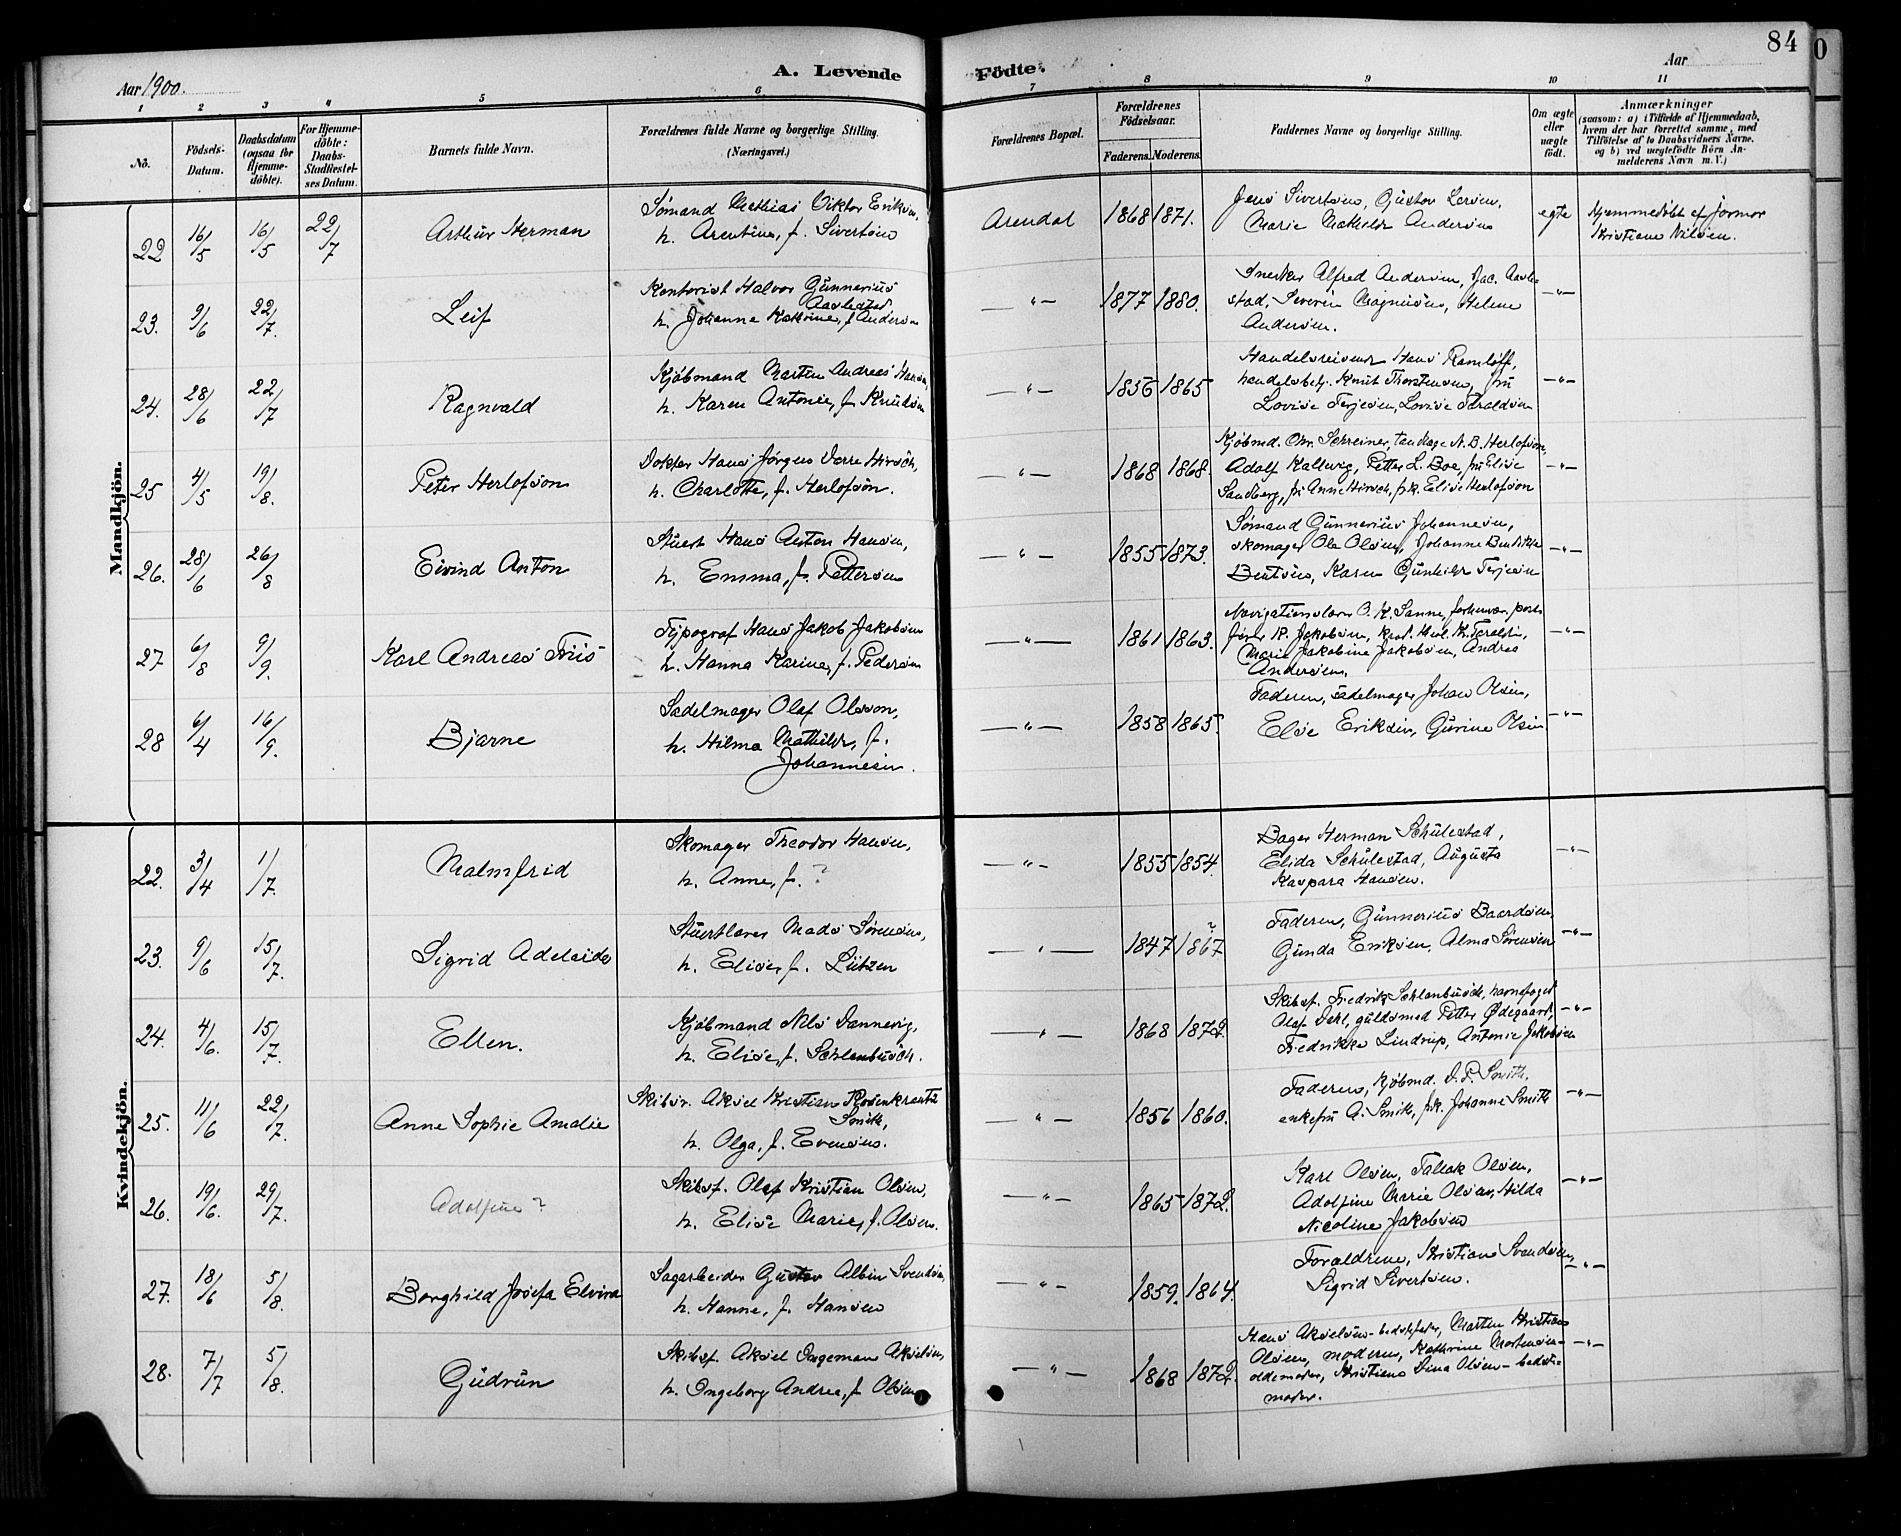 84
Aar 1900.
A. Levende Födte.
Aar
1 2 3 4 5 6 7 8 9 10 11
No.
Födsels-Datum.
Daabsdatum (ogsaa for Hjemme-döbte).
For Hjemme-döbte: Daabs-Stadfæstel-ses Datum.
Barnets fulde Navn.
Forældrenes fulde Navne og borgerlige Stilling. (Næringsvei.)
Forældrenes Bopæl.
Forældrenes Födselsaar.
Faderens. Moderens.
Faddernes Navne og borgerlige Stilling.
Om ægte eller uægte födt.
Anmærkninger
(saasom: a) i Tilfælde af Hjemmedaab,
hvem der har forrettet samme, med
Tilföielse af to Daabsvidners Navne,
og b) ved uægtefödte Börn An-
melderens Navn m. V.)
Mandkjön.
22 16/5 16/5 22/7 Arthur Herman
Sömand Mathias Viktor Eriksen,
h. Arentine, f. Sivertsen
Arendal 1868 1871.
Jens Sivertsen, Gustav Larsen,
Marie Mathilde Andersen
egte
Hjemmedöbt af jormor
Kristiane Nilsen.
23. 9/6 22/7. Leif
Kontorist Halvor Gunnerius
Aaslestad
h. Johanne Kathrine, f. Andersen
—"— 1877 1880.
Snedker Alfred Andersen, Jac. Aasle-
stad. Severin Magnusen, Helene
Andersen.
—"—
24. 28/6 22/7 Ragnvald
Kjöbmand Martin Andreas Hansen,
h. Karen Antonie, f. Knudsen
—"— 1856 1865
Handelsreisende Hans Ramløff,
handelsbetj. Knut Thorstensen, fru
Lovise Terjesen, Lovise Taraldsen
—"—
25 4/5 19/8. Peter Herlofson
Doktor Hans Jørgen Darre Hirsch,
h. Charlotte, f. Herlofson.
—"— 1868 1868.
Kjöbmd. Chr. Schreiner, tandlæge N. B. Herlofson,
Adolf Kallevig, Petter L. Boe, fru Elise
Sandberg, fr. Anne Hirsch, frk. Elise Herlofson
—"—
26. 28/6 26/8 Eivind Anton
Stuert Hans Anton Hansen,
h. Emma, f. Pettersen
—"— 1855 1873.
Sömand Gunnerius Johannesen,
skomager Ole Olsen, Johanne Bendikte
Bentsen, Karen Gunhilde Terjesen
—"—
27 6/8 9/9. Karl Andreas Friis
Typograf Hans Jakob Jakobsen
h. Hanna Karine, f. Pedersen
—"— 1861 1863.
Navigationslærer O. K. Sanne, forhenv. post-
fører R. Jakobsen,
Marie Jakobine Jakobsen, Andrea
Andersen.
—"—
28 6/4 16/9. Bjarne
Sadelmager Olaf Olsson,
h. Hilma Mathilde, f.
Johannesen.
—"— 1858 1865.
Faderen, sadelmager Johan Olsen,
Elise Eriksen, Gurine Olsen
—"—
Kvindekjön.
22. 3/4 1/7. Malmfrid
Skomager Theodor Hansen,
h. Anne, f. ?
—"— 1855 1854.
Bager Herman Schulestad,
Elida Schulestad, Augusta
Kaspara Hansen.
—"—
23. 9/6 15/7. Sigrid Adelaide
Stuertlærer Mads Sørensen,
h. Elise, f. Lützen
—"— 1847 1867 ?
Faderen, Gunnerius Baardsen,
Gunda Eriksen, Alma Sørensen
—"—
24. 4/6. 15/7. Ellen.
Kjöbmand Nils Dannevig,
h. Elise, f. Schlanbusch.
—"— 1868 1872.
Skibsf. Fredrik Schlanbusch, havnefoged
Olaf Dahl, guldsmed Petter Ødegaard,
Fredrikke Lindrup, Antonie Jakobsen
—"—
25. 11/6 22/7. Anne Sophie Amalie
Skibsr. Aksel Kristian Rosenkrantz
Smith,
h. Olga, f. Evensen.
—"— 1856 1860.
Faderen, kjöbmd. D. P. Smith,
enkefru A. Smith, frk. Johanne Smith
—"—
26. 19/6. 29/7. Adolfine ?
Skibsf. Olaf Kristian Olsen,
h. Elise Marie, f. Olsen.
—"— 1865 1872.
Karl Olsen, Tallak Olsen,
Adolfine Marie Olsen, Hilda
Nicoline Jakobsen
—"—
27. 18/6 5/8. Borghild Josefa Elvira
Sagarbeider Gustav Albin Svendsen,
h. Hanne, f. Hansen
—"— 1859. 1864.
Forældrene, Kristiane Svendsen,
Sigrid Sivertsen.
—"—
28. 7/7 5/8. Gudrun
Skibsf. Aksel Ingeman Akselsen,
h. Ingeborg Andrea, f. Olsen
—"— 1868 1872.
Hans Akselsen - bedstefader, Martin Kristian
Olsen, moderen, Kathrine Mortensen -
oldemoder, Kristiane Dina Olsen - bedste-
moder.
—"—